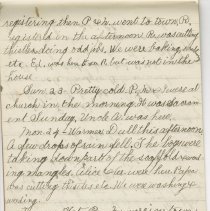 registering then P & R. went to town, R.
registered in the afternoon R. was cutting
thistles doing odd jobs. We were baking, wash
etc. Ed. was here to see R. but was not in the
house.
Sun. 23 - Pretty cold P. R. & I were at
church in the morning. It was Sacra
ment Sunday. Uncle A. was here.
Mon. 24 - Warmer Dull this afternoon
A few drops of rain fell. The boys were
taking down part of the scaffold & was
ing mangles. Alice Cia. were here Papa
was cutting thistles etc. We were washing &